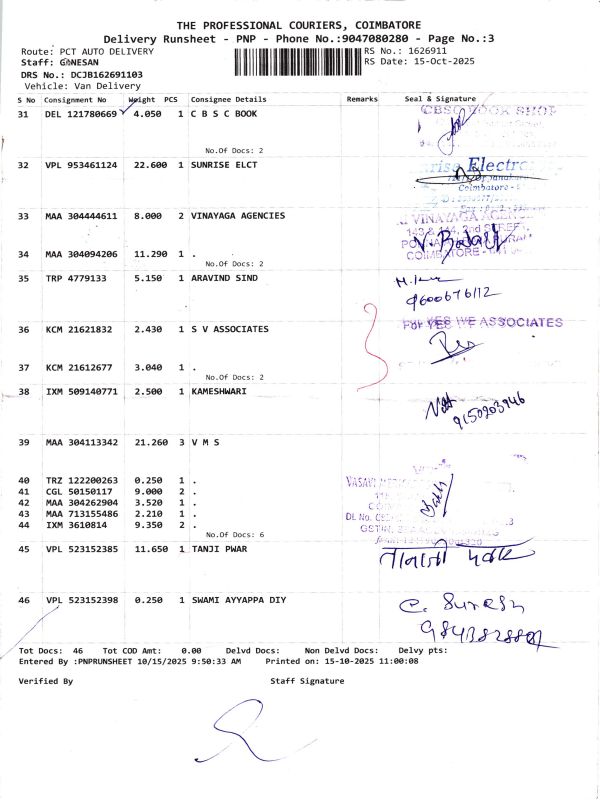 THE PROFESSIONAL COURIERS, COIMBATORE
Delivery Runsheet - PNP - Phone No.:9047080280 - Page No.:3
Route: PCT AUTO DELIVERY RS No.: 1626911
Staff: GANESAN RS Date: 15-Oct-2025
DRS No.: DCJB162691103
Vehicle: Van Delivery
S No Consignment No Weight PCS Consignee Details Remarks Seal & Signature
31 DEL 121780669 4.050 1 C B S C BOOK
CBSC BOOK SHOP
No.Of Docs: 2
32 VPL 953461124 22.600 1 SUNRISE ELCT
Coimbatore -
33 MAA 304444611 8.000 2 VINAYAGA AGENCIES
VINAYAGA AGENC
143 & 144, 2nd STREET,
34 MAA 304094206 11.290 1 .
COIMBATORE
No.Of Docs: 2
35 TRP 4779133 5.150 1 ARAVIND SIND
9600676112
36 KCM 21621832 2.430 1 S V ASSOCIATES
For YES WE ASSOCIATES
37 KCM 21612677 3.040 1 .
No.Of Docs: 2
38 IXM 509140771 2.500 1 KAMESHWARI
9150203946
39 MAA 304113342 21.260 3 V M S
40 TRZ 122200263 0.250 1 .
VASAVI
41 CGL 50150117 9.000 2 .
42 MAA 304262904 3.520 1 .
43 MAA 713155486 2.210 1 .
DL No.
44 IXM 3610814 9.350 2 .
No.Of Docs: 6
45 VPL 523152385 11.650 1 TANJI PWAR
46 VPL 523152398 0.250 1 SWAMI AYYAPPA DIY
C. Suresh
Tot Docs: 46 Tot COD Amt: 0.00 Delvd Docs: Non Delvd Docs: Delvy pts:
Entered By :PNPRUNSHEET 10/15/2025 9:50:33 AM Printed on: 15-10-2025 11:00:08
Verified By Staff Signature